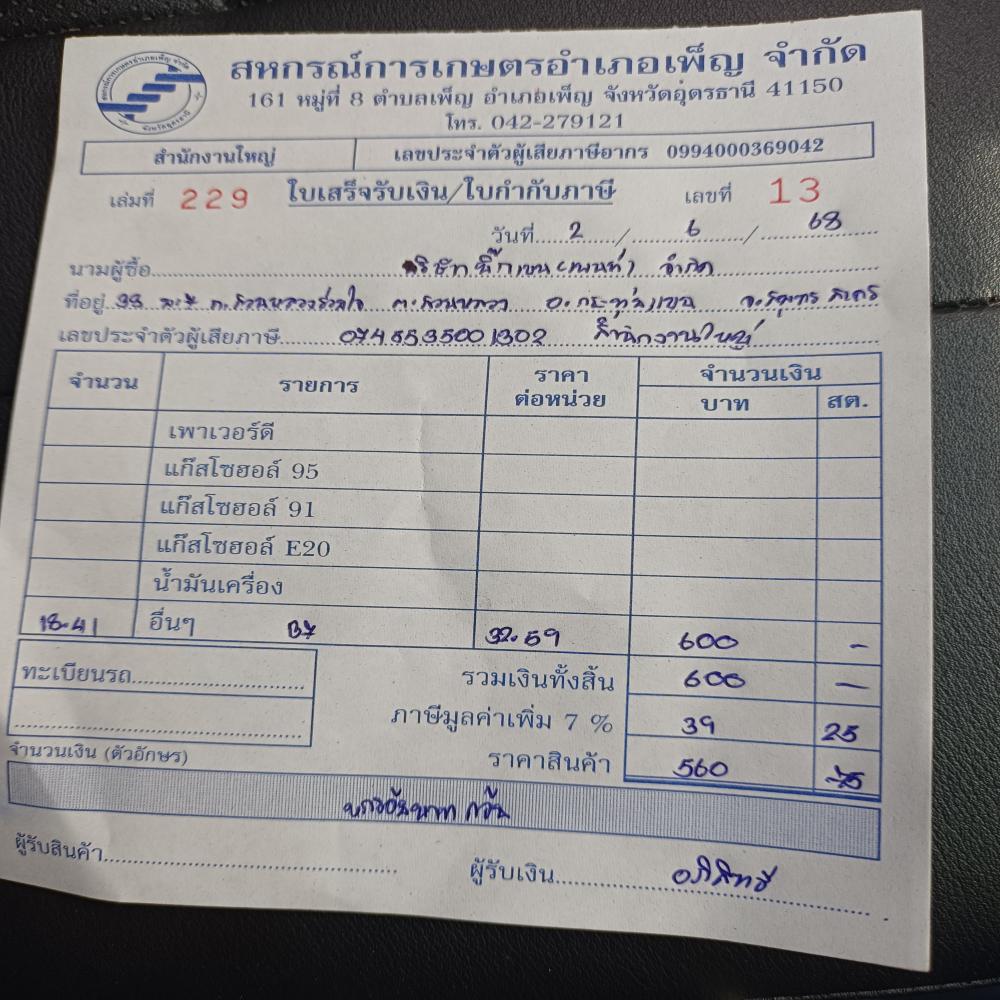 สหกรณ์การเกษตรอำเภอเพ็ญ จำกัด
161 หมู่ที่ 8 ตำบลเพ็ญ อำเภอเพ็ญ จังหวัดอุดรธานี 41150
โทร. 042-279121
สำนักงานใหญ่ เลขประจำตัวผู้เสียภาษีอากร 0994000369042
เล่มที่ 229 ใบเสร็จรับเงิน/ใบกำกับภาษี เลขที่ 13
วันที่ 2 / 6 / 68
นามผู้ซื้อ จำกัด
ที่อยู่ 98 ต.สวนหลวง อ.กระทุ่มแบน จ.สมุทรสาคร
เลขประจำตัวผู้เสียภาษี 0745535001302 สำนักงานใหญ่
จำนวน รายการ ราคาต่อหน่วย จำนวนเงิน
บาท สต.
เพาเวอร์ดี
แก๊สโซฮอล์ 95
แก๊สโซฮอล์ 91
แก๊สโซฮอล์ E20
น้ำมันเครื่อง
18.41 อื่นๆ B7 32.59 600 -
รวมเงินทั้งสิ้น 600 -
ทะเบียนรถ
ภาษีมูลค่าเพิ่ม 7 % 39 25
ราคาสินค้า 560 75
จำนวนเงิน (ตัวอักษร)
หกร้อยบาทถ้วน
ผู้รับสินค้า
ผู้รับเงิน อภิสิทธิ์